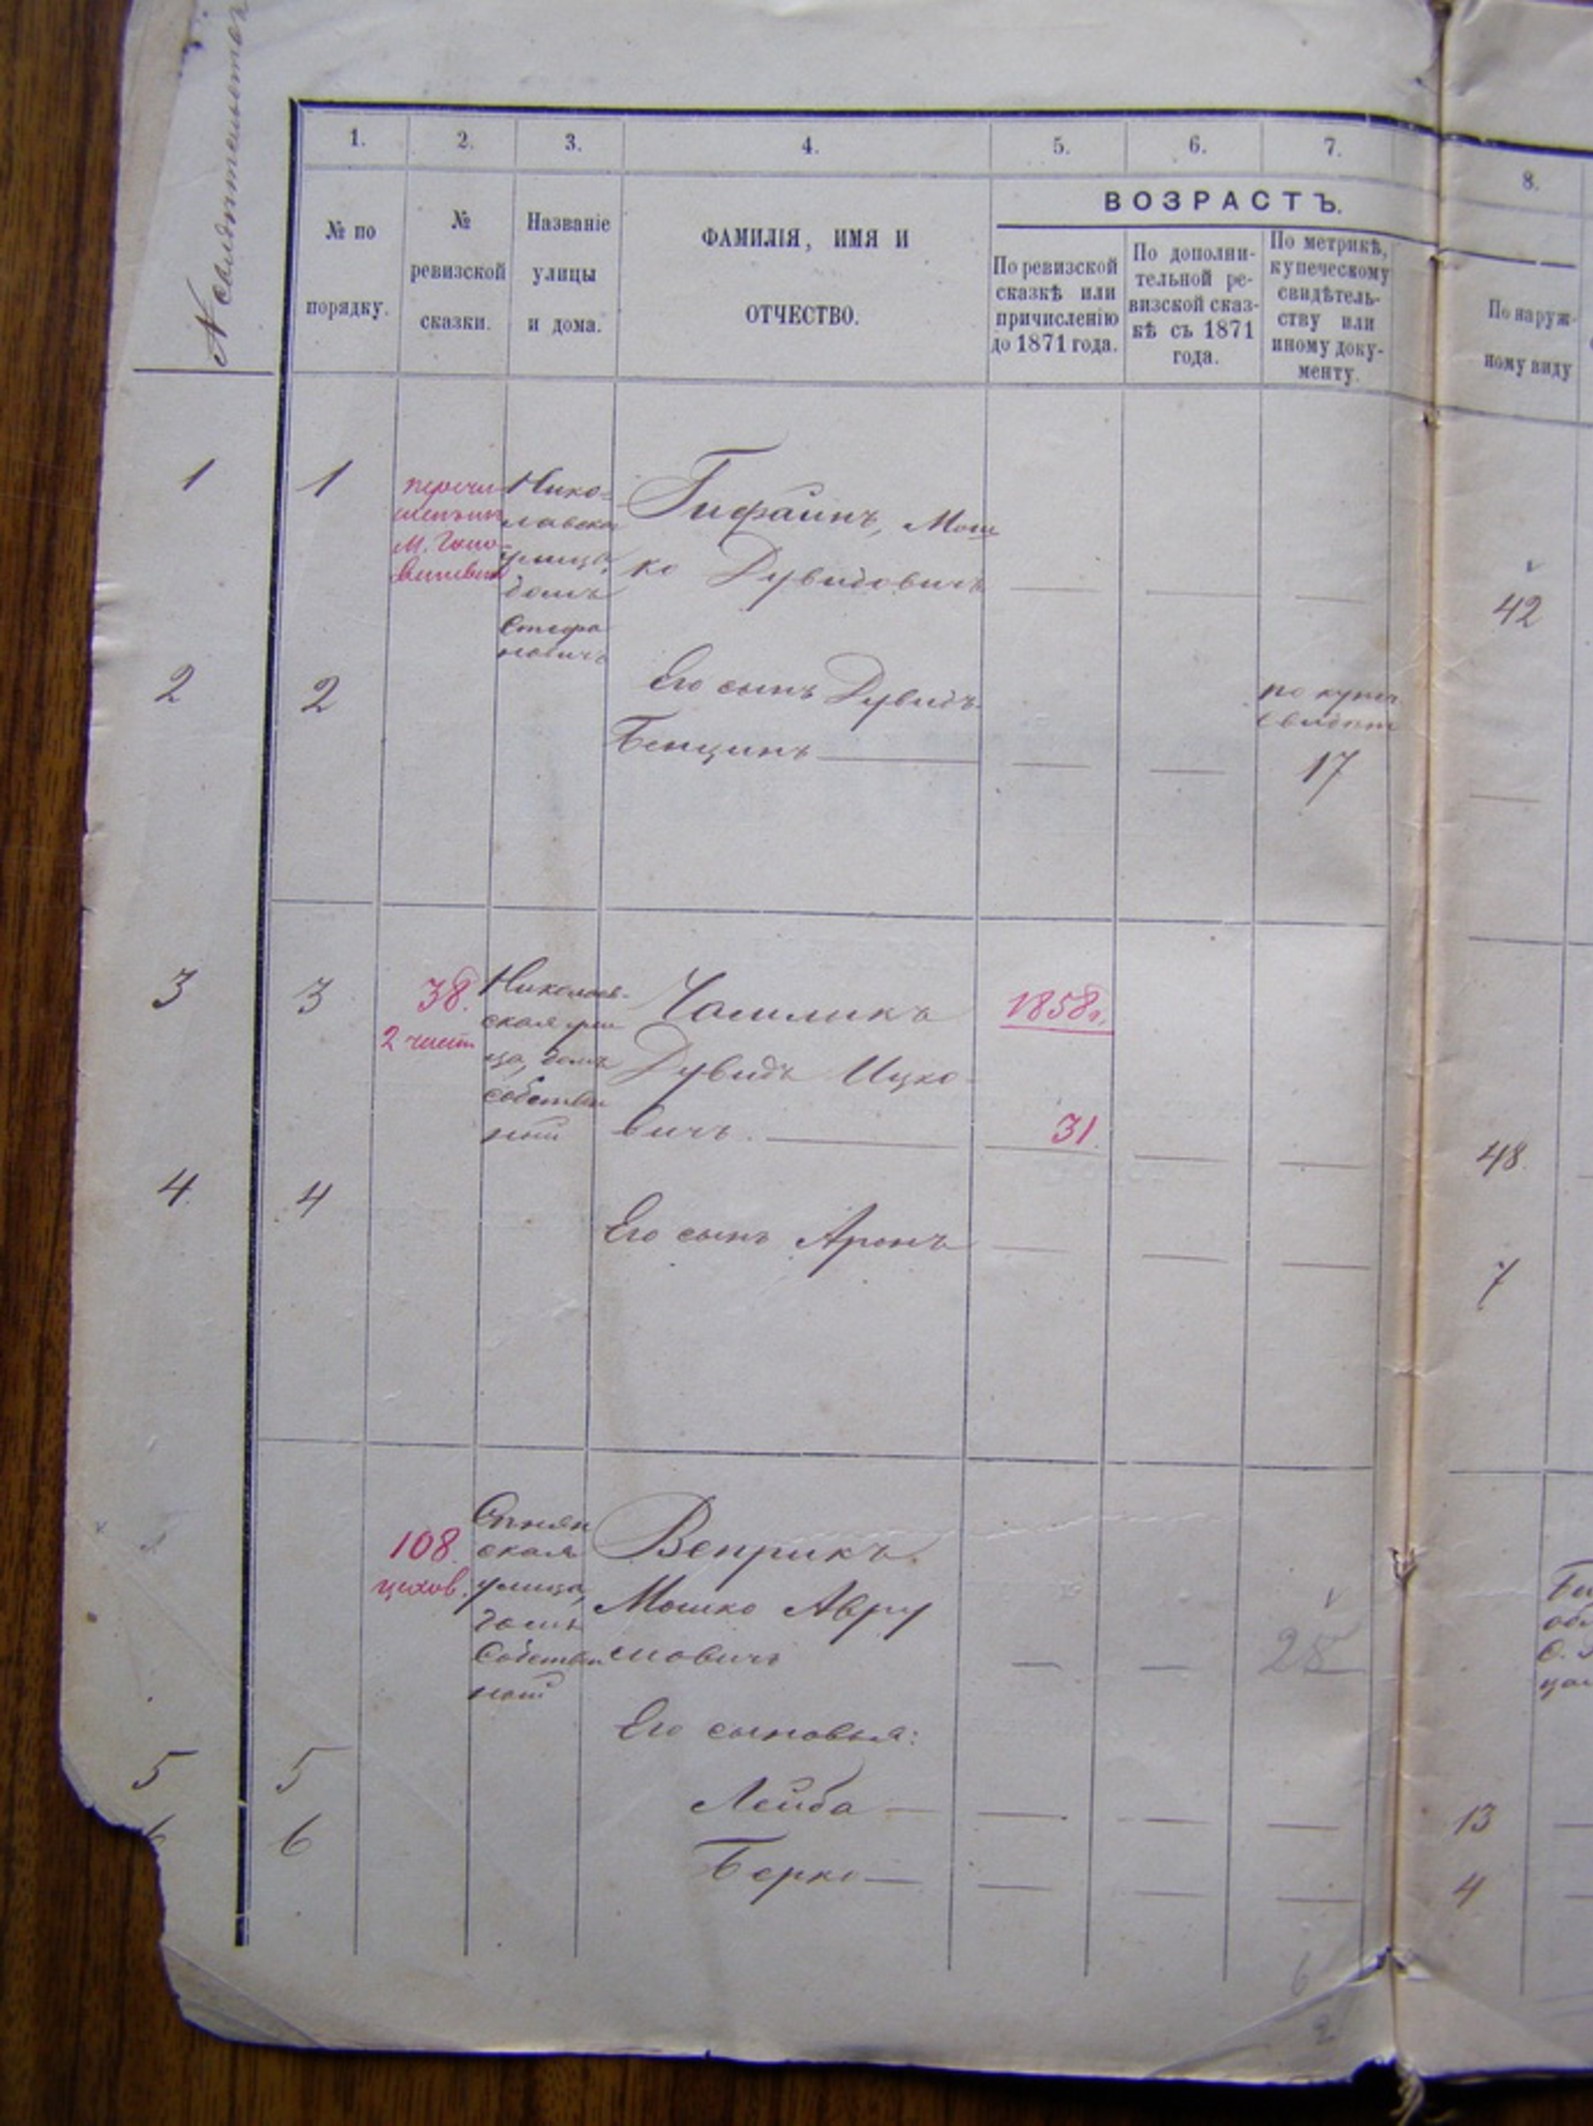 № свидѣтельства
1.
2.
3.
4.
5.
6.
7.
8.
№ по
порядку.
№
ревизской
сказки.
Названіе
улицы
и дома.
ФАМИЛІЯ, ИМЯ И
ОТЧЕСТВО.
ВОЗРАСТЪ.
По ревизской
сказкѣ или
причисленію
до 1871 года.
По дополни-
тельной ре-
визской сказ-
кѣ съ 1871
года.
По метрикѣ,
купеческому
свидѣтель-
ству или
иному доку-
менту.
По наруж-
ному виду
1
1
Нико-
лавская
улица,
домъ
Стефа
новичъ
Гифаинъ, Мош
ко Дувидовичъ
42
2
2
Его сынъ Дувидъ
Бенцинъ
по купеч
свидѣт
17
3
3
38.
2 части
Николаев-
ская ули
ца, домъ
собствен
ный
Дувидъ Ицко-
вичъ.
1858г.
31
48
4
4
Его сынъ Аронъ
7
108
цехов.
ская
улица,
домъ
Собствен
ный
Веприкъ
Мошко Авру
мовичъ
25
Его сыновья:
5
5
Лейба
13
6
6
Берко
4
6
2